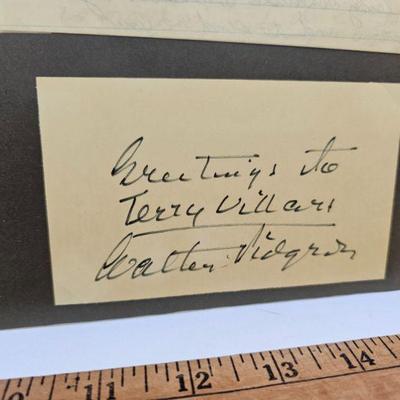 Greetings to
Terry Villars
Walter Pidgeon
11 12 13 14 15